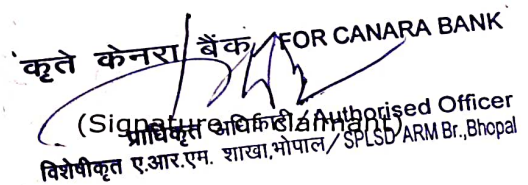 कृते केनरा बैंक FOR CANARA BANK
(Signature Of Claimant)
प्राधिकृत अधिकारी / Authorised Officer
विशेषीकृत ए.आर.एम. शाखा,भोपाल / SPLSD ARM Br.,Bhopal